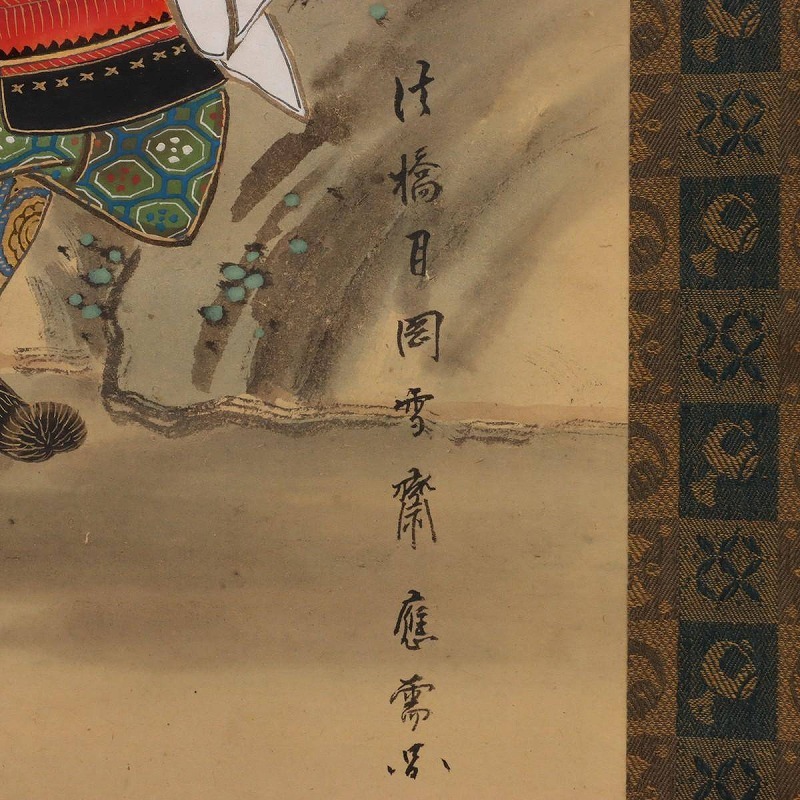 法橋月岡雪齋應需圖